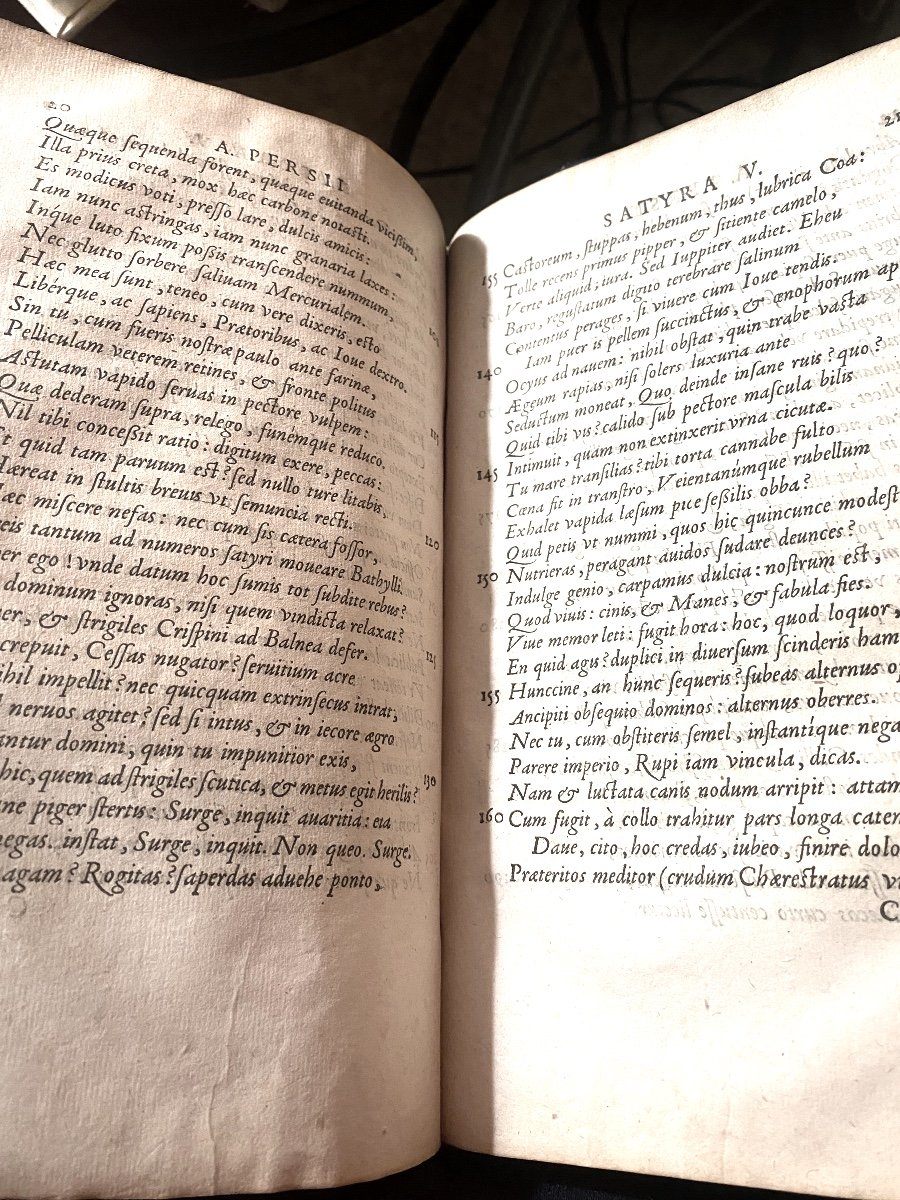 20
A. PERSII
Quæque sequenda forent, quæque euitanda vicissim,
Illa prius creta, mox hæc carbone notasti.
Es modicus voti, presso lare, dulcis amicis:
Iam nunc astringas, iam nunc granaria laxes:
Inque luto fixum possis transcendere nummum,
Nec glutto sorbere saliuam Mercurialem.
Hæc mea sunt, teneo, cum vere dixeris, esto
Liberque, ac sapiens, Prætoribus, ac Ioue dextro.
Sin tu, cum fueris nostræ paulo ante farinæ,
Pelliculam veterem retines, & fronte politus
Astutam vapido seruas in pectore vulpem: 115
Quæ dederam supra, relego, funémque reduco.
Nil tibi concessit ratio: digitum exere, peccas:
t quid tam paruum est? sed nullo ture litabis,
Hæreat in stultis breuis vt semuncia recti.
æc miscere nefas: nec cum sis cætera fossor, 120
eis tantum ad numeros satyri moueare Bathylli.
er ego! vnde datum hoc sumis tot subdite rebus?
dominum ignoras, nisi quem vindicta relaxat?
er, & strigiles Crispini ad Balnea defer.
crepuit, Cessas nugator? seruitium acre 125
ihil impellit? nec quicquam extrinsecus intrat,
neruos agitet? sed si intus, & in iecore ægro
antur domini, quin tu impunitior exis,
hic, quem ad strigiles scutica, & metus egit herilis? 130
ne piger stertis: Surge, inquit auaritia: eia
negas. instat, Surge, inquit. Non queo. Surge.
agam? Rogitas? saperdas aduehe ponto,
21
SATYRA V.
155 Castoreum, stuppas, hebenum, thus, lubrica Coa:
Tolle recens primus pipper, & sitiente camelo,
Verte aliquid; iura. Sed Iuppiter audiet. Eheu
Baro, regustatum digito terebrare salinum
Contentus perages, si viuere cum Ioue tendis.
140 Iam puer is pellem succinctus, & œnophorum ap
Ocyus ad nauem: nihil obstat, quin trabe vasta
Ægeum rapias, nisi solers luxuria ante
Seductum moneat, Quo deinde insane ruis? quo?
Quid tibi vis? calido sub pectore mascula bilis
145 Intimuit, quam non extinxerit vrna cicutæ.
Tu mare transilias? tibi torta cannabe fulto
Cœna sit in transtro, Veientanúmque rubellum
Exhalet vapida læsum pice sessilis obba?
Quid petis vt nummi, quos hic quincunce modest
150 Nutrieras, peragant auidos sudare deunces?
Indulge genio, carpamus dulcia: nostrum est,
Quod viuis: cinis, & Manes, & fabula fies.
Viue memor leti: fugit hora: hoc, quod loquor,
En quid agis? duplici in diuersum scinderis ham
155 Hunccine, an hunc sequeris? subeas alternus op
Ancipiti obsequio dominos: alternus oberres.
Nec tu, cum obstiteris semel, instantíque nega
Parere imperio, Rupi iam vincula, dicas.
Nam & luctata canis nodum arripit: attam
160 Cum fugit, à collo trahitur pars longa caten
Daue, cito, hoc credas, iubeo, finire dolo
Præteritos meditor (crudum Chærestratus v
C